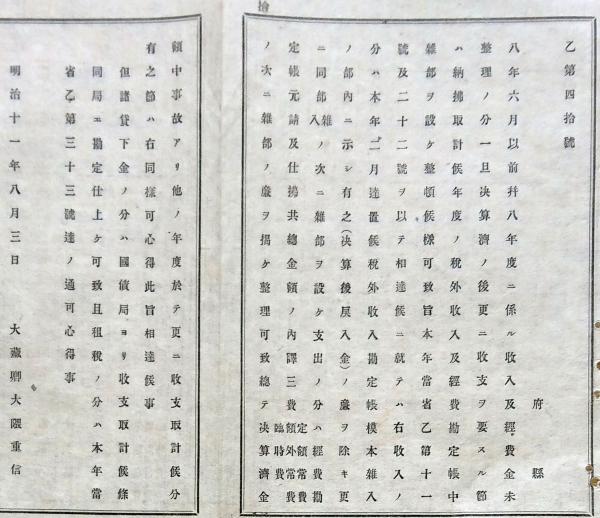 乙第四拾號
府縣
八年六月以前幷八年度ニ係ル收入及經費金未
整理ノ分一旦決算濟ノ後更ニ收支ヲ要スル節
ハ納拂取計候年度ノ稅外收入及經費勘定帳中
雜部ヲ設ケ整頓候樣可致旨本年當省乙第十一
號及二十二號ヲ以テ相達候ニ就テハ右收入ノ
分ハ本年二月達置候稅外收入勘定帳模本雜入
ノ部內ニ示シ有之(決算後戾入金)ノ廉ヲ除キ更
ニ同部雜入ノ次ニ雜部ヲ設ケ支出ノ分ハ經費勘
定帳元請及仕拂共總金額ノ內譯三費定額常費額外常費臨時費
ノ次ニ雜部ノ廉ヲ揭ケ整理可致總テ決算濟金
額中事故アリ他ノ年度於テ更ニ收支取計候分
有之節ハ右同樣可心得此旨相達候事
但諸貸下金ノ分ハ國債局ヨリ收支取計候條
同局エ勘定仕上ケ可致且租稅ノ分ハ本年當
省乙第三十三號達ノ通可心得事
明治十一年八月三日 大藏卿大隈重信